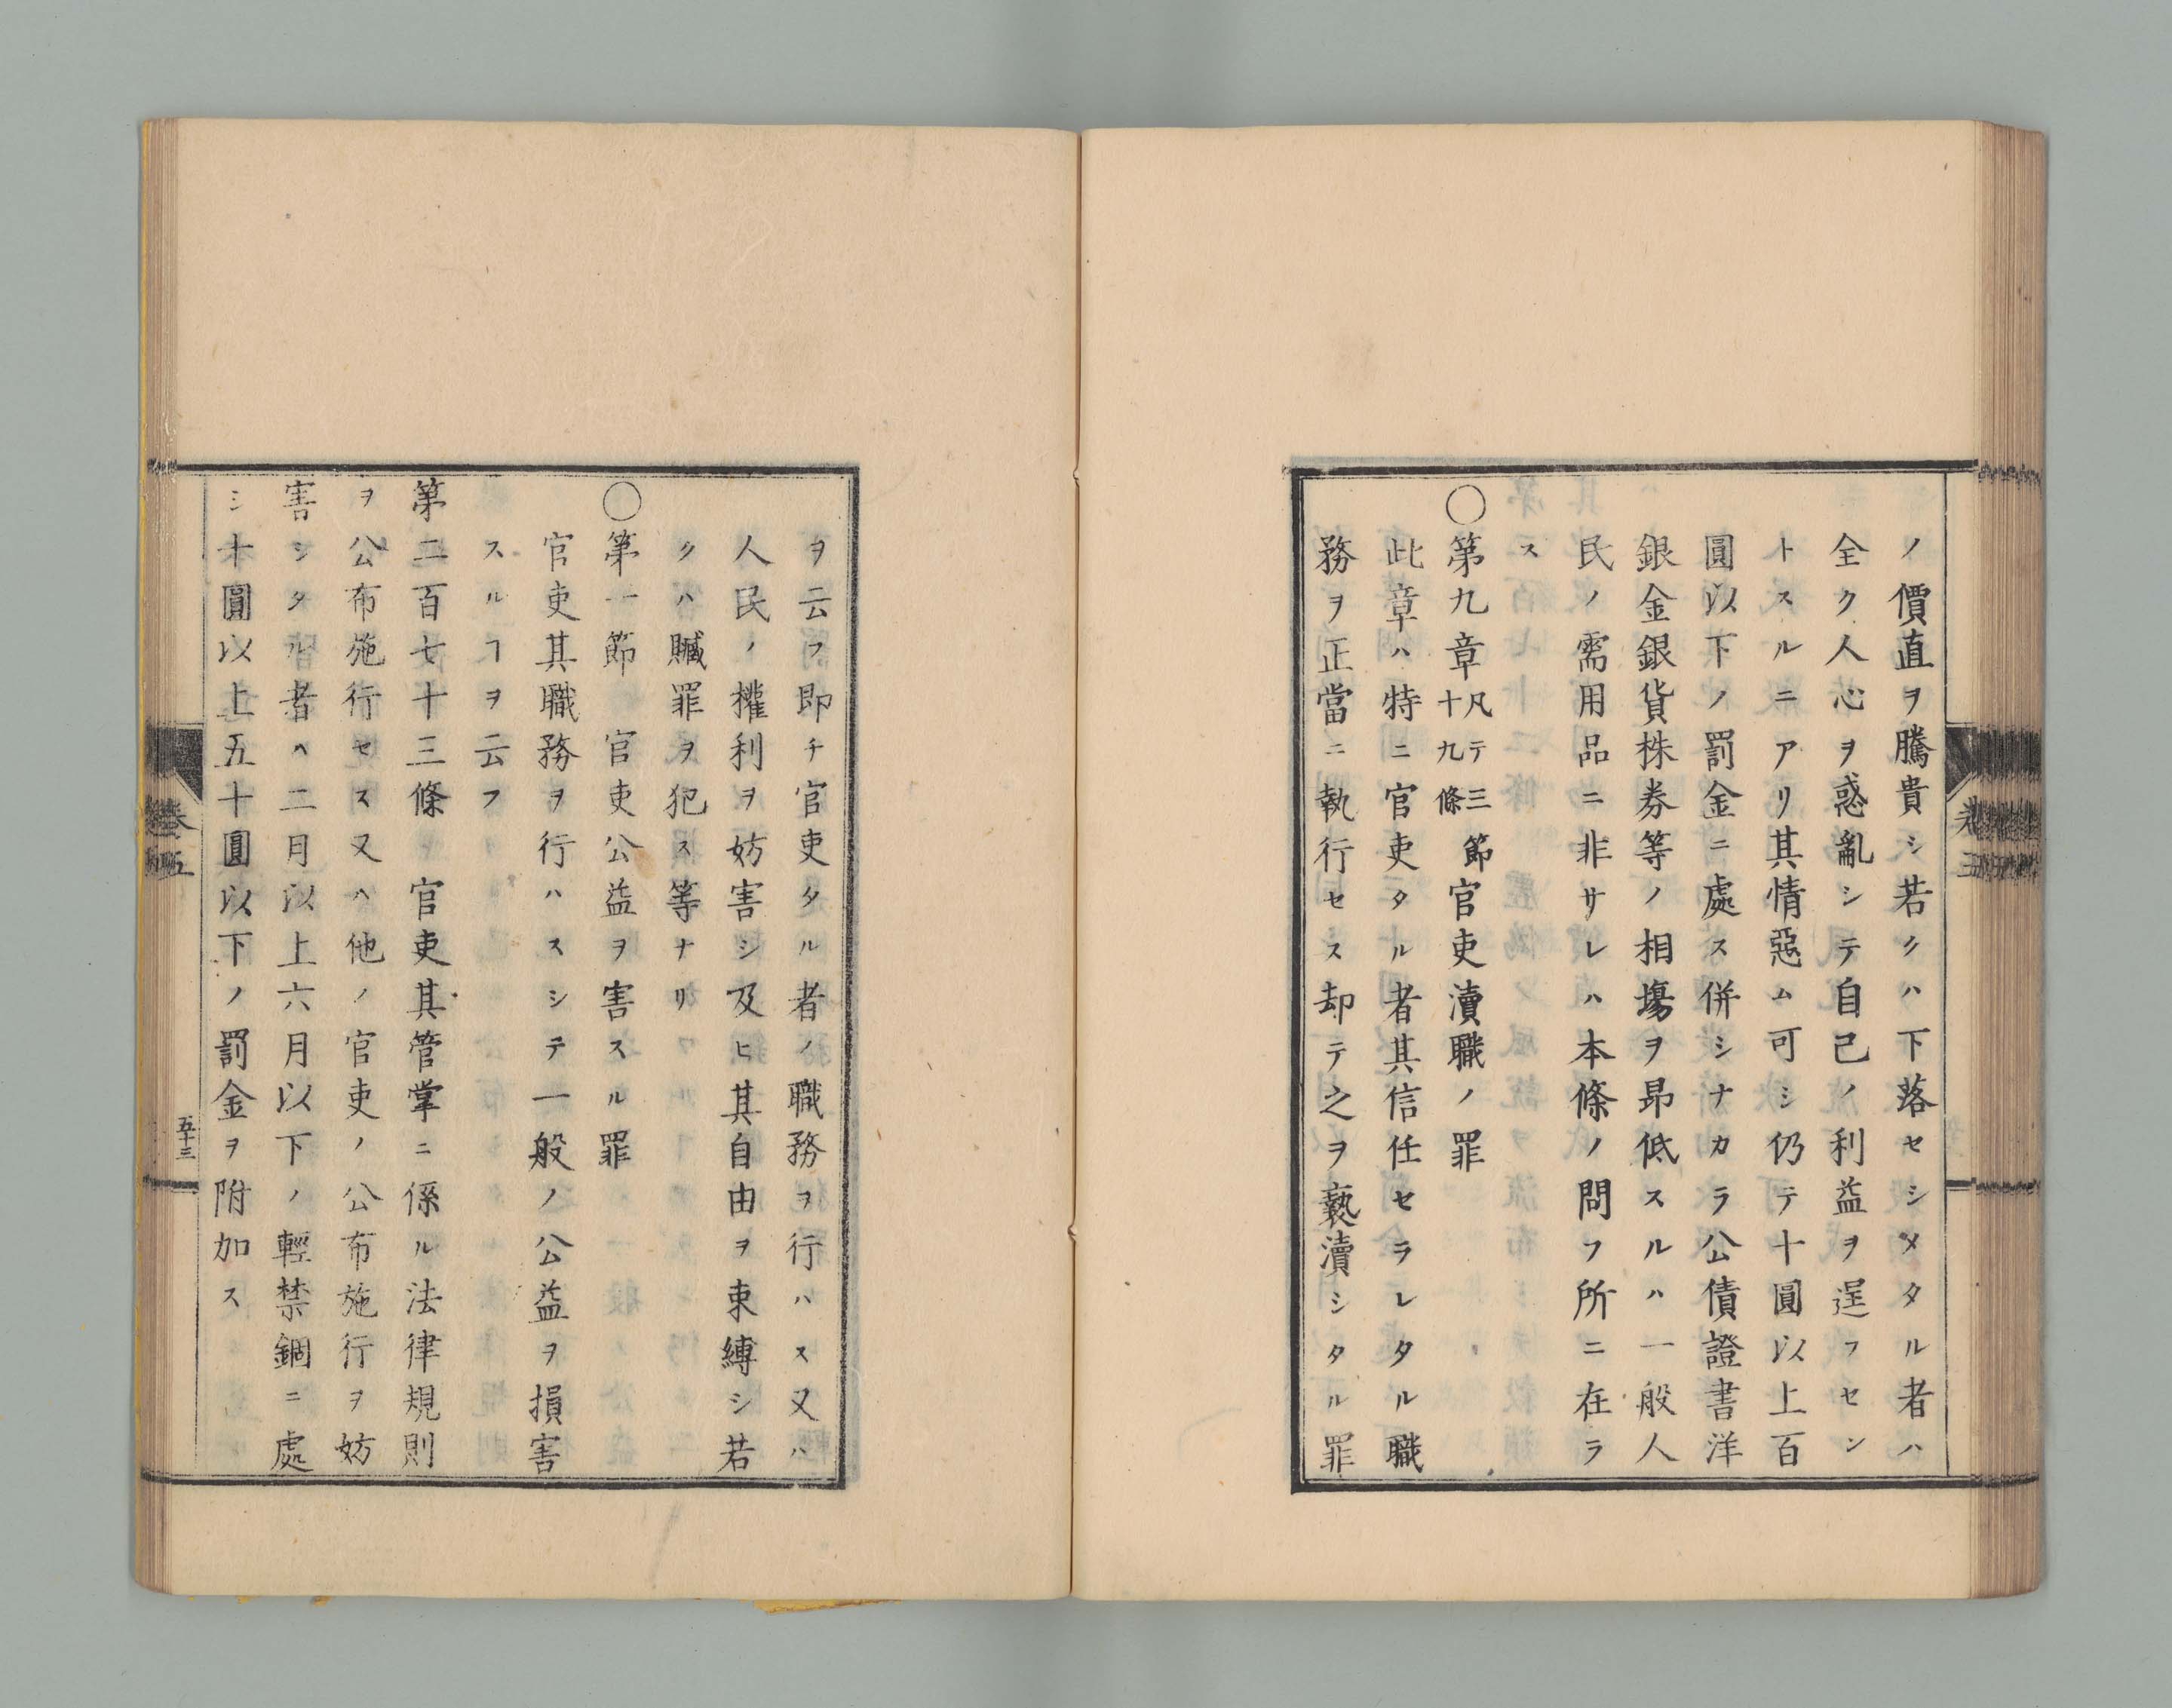 ノ價直ヲ騰貴シ若クハ下落セシメタル者ハ
全ク人心ヲ惑亂シテ自己ノ利益ヲ逞フセン
トスルニアリ其情惡ム可シ仍テ十圓以上百
圓以下ノ罰金ニ處ス併シナカラ公債證書洋
銀金銀貨株劵等ノ相塲ヲ昻低スルハ一般人
民ノ需用品ニ非サレハ本條ノ問フ所ニ在ラ
ス
〇第九章凡テ三節十九條官吏瀆職ノ罪
此章ハ特ニ官吏タル者其信任セラレタル職
務ヲ正當ニ執行セス却テ之ヲ褻瀆シタル罪
ヲ云フ即チ官吏タル者ノ職務ヲ行ハス又ハ
人民ノ權利ヲ妨害シ及ヒ其自由ヲ束縛シ若
クハ贓罪ヲ犯ス等ナリ
〇第一節 官吏公益ヲ害スル罪
官吏其職務ヲ行ハスシテ一般ノ公益ヲ損害
スルヿヲ云フ
第二百七十三條 官吏其管掌ニ係ル法律規則
ヲ公布施行セス又ハ他ノ官吏ノ公布施行ヲ妨
害シタル者ハ二月以上六月以下ノ輕禁錮ニ處
シ十圓以上五十圓以下ノ罰金ヲ附加ス
卷五
五十三